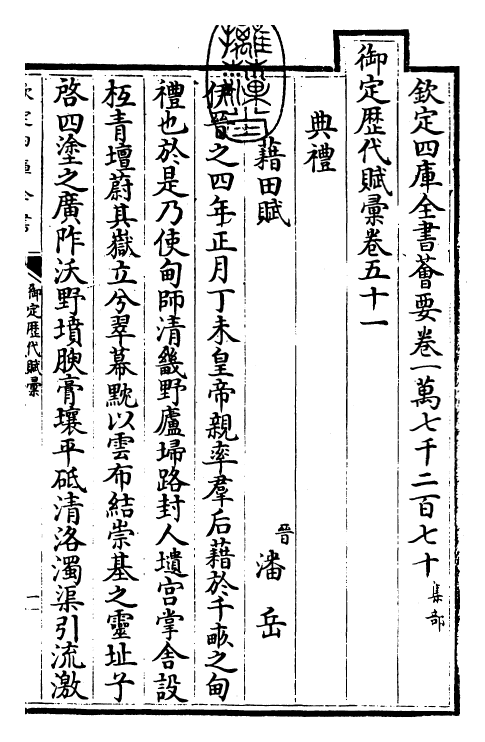 欽定四庫全書薈要卷一萬七千二百七十集部
御定歷代賦彙卷五十一
典禮
藉田賦　晉潘岳
伊晉之四年正月丁未皇帝親率羣后藉於千畝之甸
禮也於是乃使甸師清畿野廬埽路封人壝宮掌舍設
枑青壇蔚其嶽立兮翠幕黕以雲布結崇基之靈址兮
啓四塗之廣阼沃野墳腴膏壤平砥清洛濁渠引流激
御定歷代賦彙